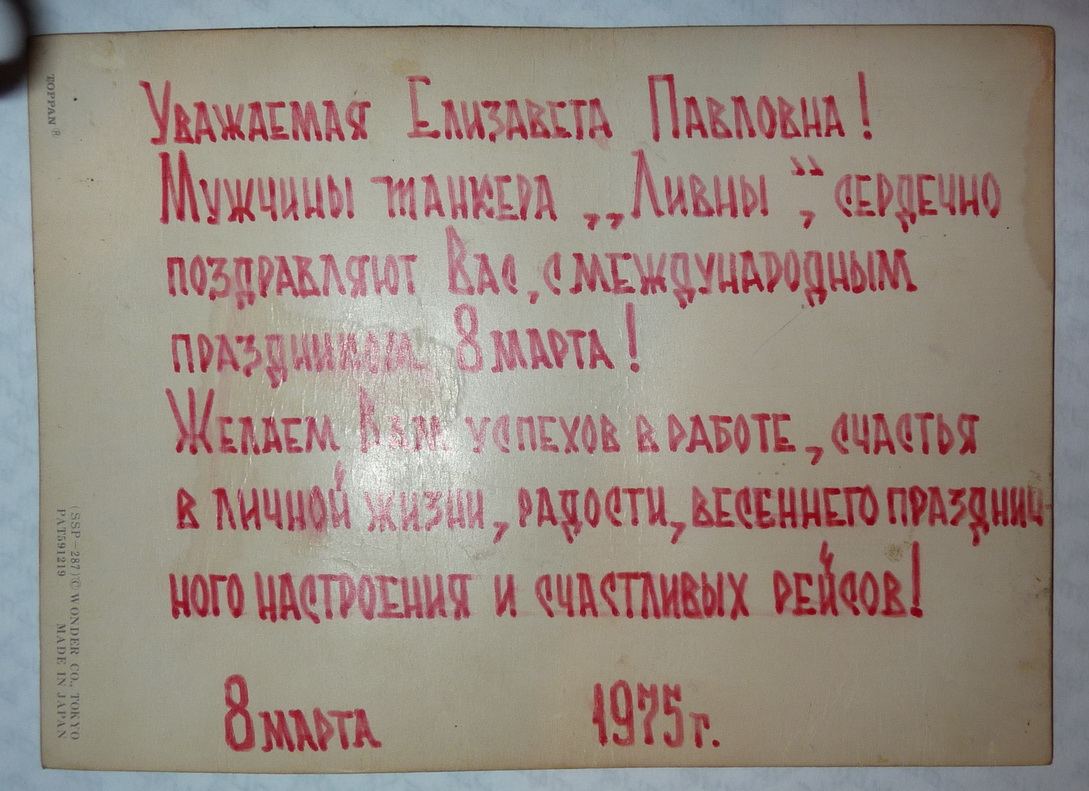 Уважаемая Елизавета Павловна!
Мужчины танкера „Ливны”, сердечно
поздравляют Вас, с международным
праздником 8 марта!
Желаем Вам успехов в работе, счастья
в личной жизни, радости, весеннего празднич-
ного настроения и счастливых рейсов!
8 марта 1975 г.
TOPPAN ®
(SSP-287) © WONDER CO., TOKYO
PAT591219 MADE IN JAPAN